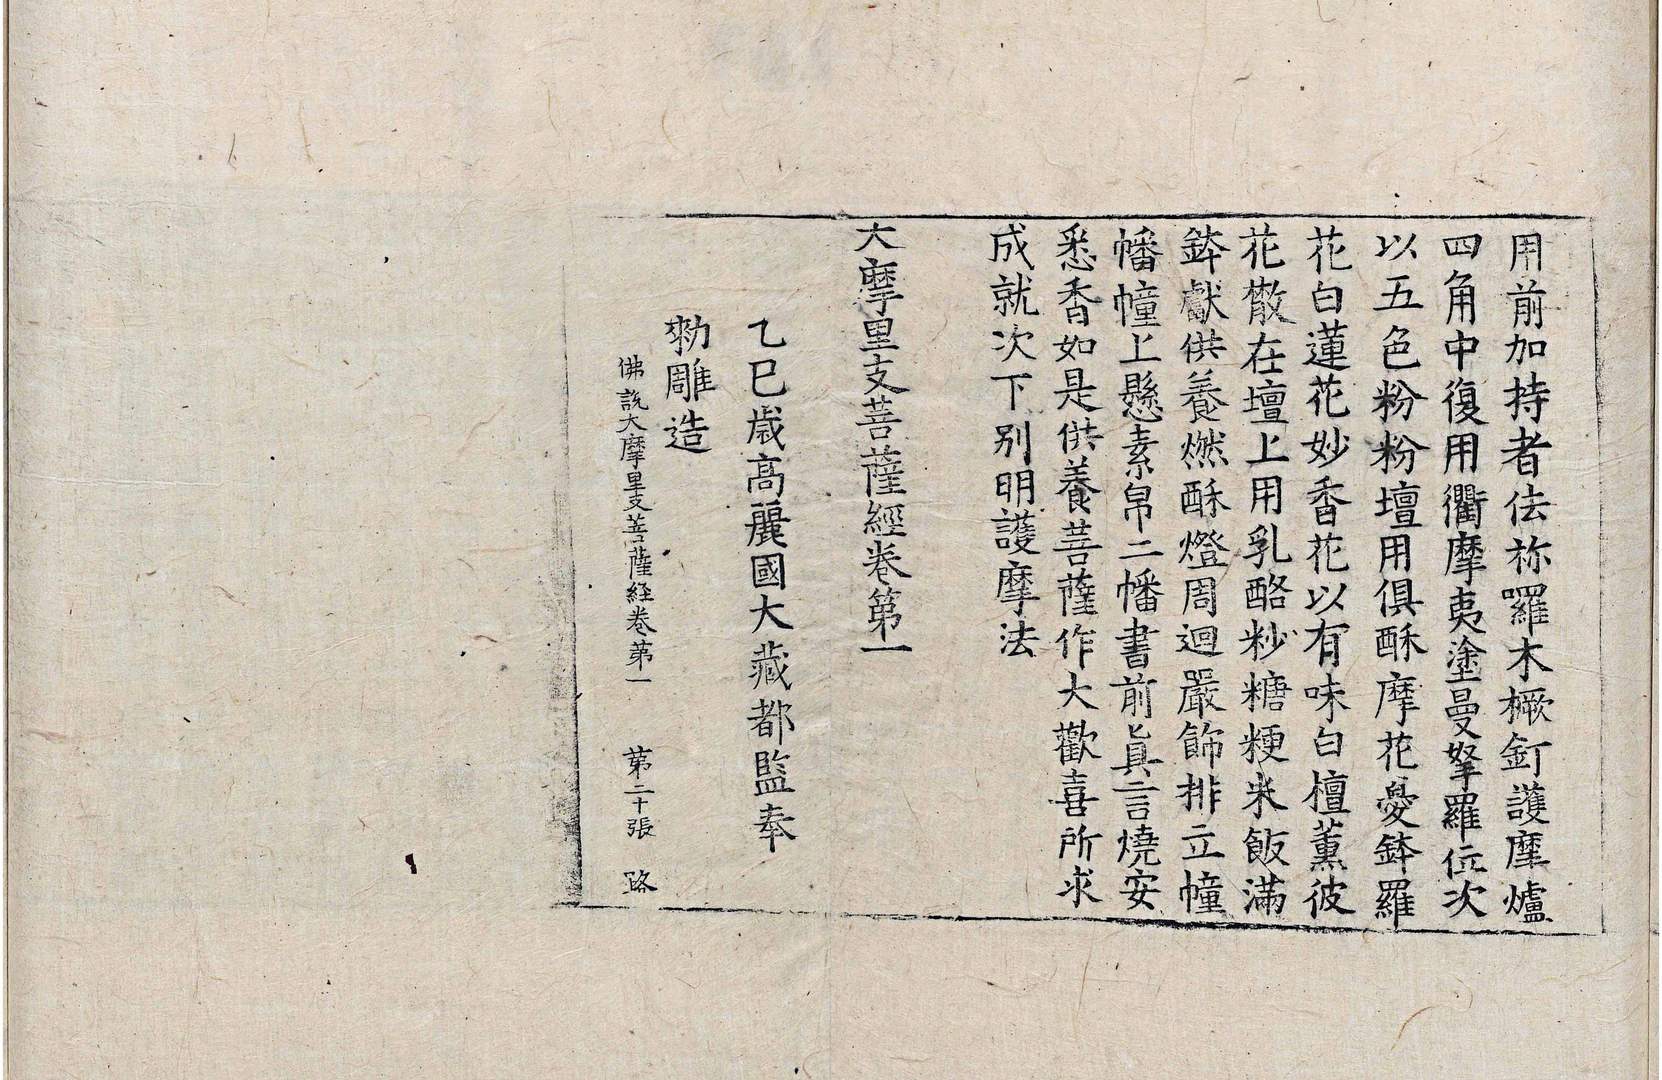 用前加持者佉祢囉木橛釘護摩爐
四角中復用衢摩夷塗曼拏羅位次
以五色粉粉壇用俱酥摩花憂鉢羅
花白蓮花妙香花以有味白檀薰彼
花散在壇上用乳酪粆糖粳米飯滿
鉢獻供養燃酥燈周迴嚴飾排立幢
幡幢上懸素帛二幡書前眞言燒安
悉香如是供養菩薩作大歡喜所求
成就次下別明護摩法
大摩里支菩薩經卷第一
乙巳歲高麗國大藏都監奉
勑雕造
佛說大摩里支菩薩経卷第一 第二十張 路